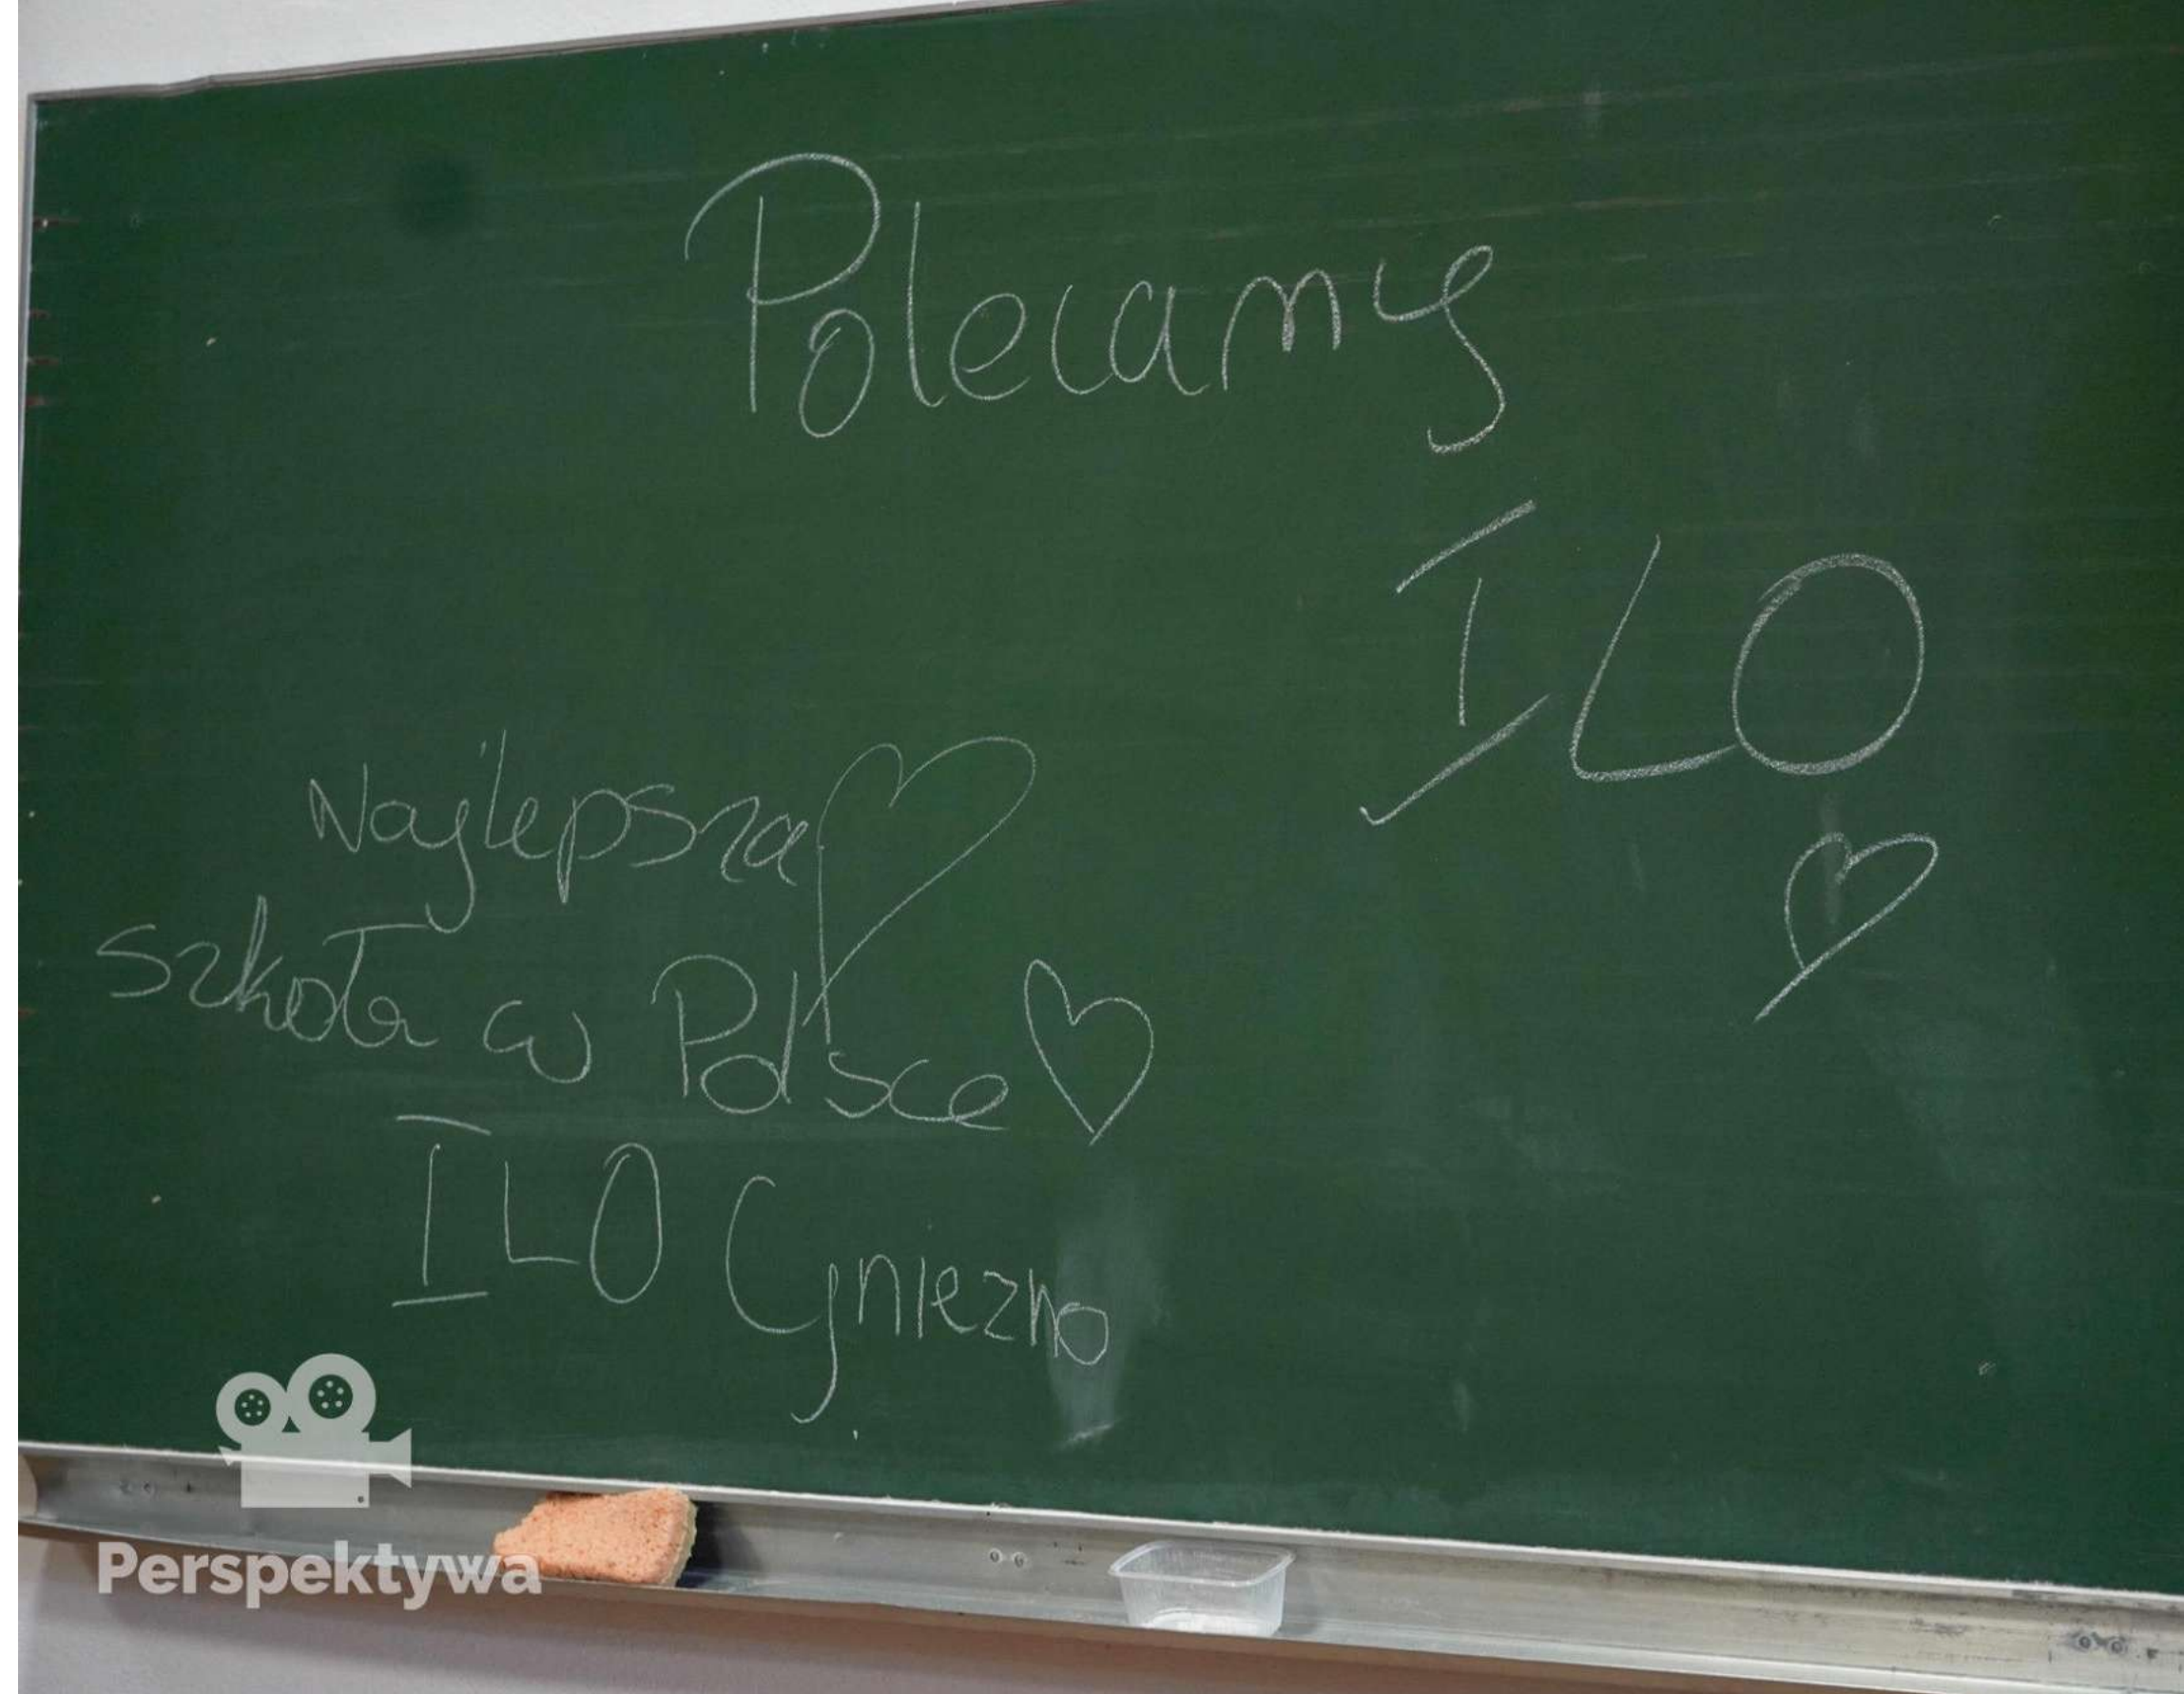 Polecamy
I LO
Najlepsza
szkoła w Polsce
I LO Gniezno
Perspektywa